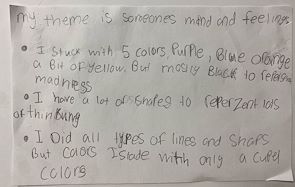 my theme is someones mind and feelings
• I Stuck with 5 colors Purple, Blue orange
a Bit of yellow. But mostly Black to
madness
• I have a lot of shapes to reperzent lots
of thinking
• I Did all types of lines and shaps
But colors I with only a
colors